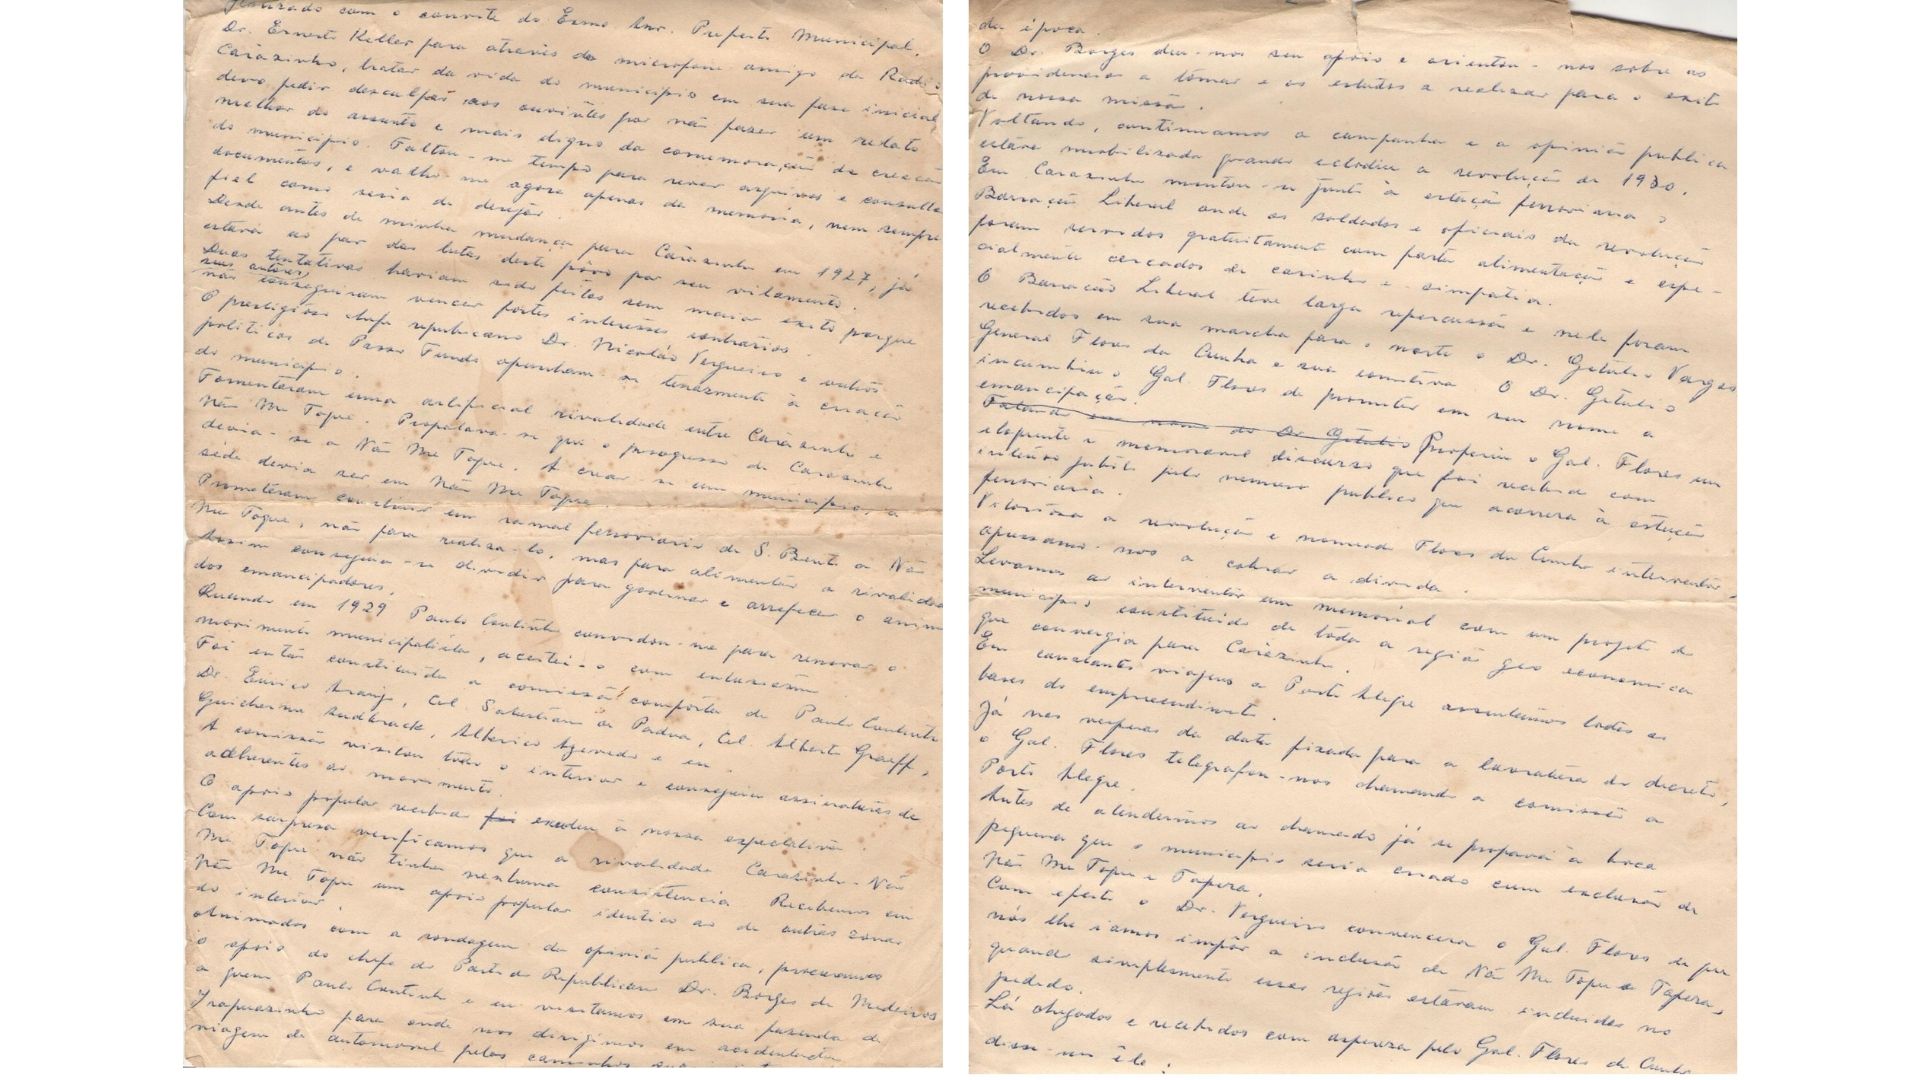 com o convite do Exmo Snr. Prefeito Municipal,
Dr. Ernesto Keller para através do microfone amigo da Radio
Carazinho, tratar da vida do municipio em sua fase inicial
devo pedir desculpas aos ouvintes por não fazer um relato
melhor do assunto e mais digno da comemoração da creação
do municipio. Faltou-me tempo para rever arquivos e consultar
documentos, e valho-me agora apenas da memória, nem sempre
fiel como seria de desejar.
Desde antes de minha mudança para Carazinho em 1927, já
estava ao par das lutas deste pôvo por seu vilamento.
Duas tentativas haviam sido feitas sem maior exito porque
seus autores
não conseguiram vencer fortes interesses contrários.
O prestigioso chefe republicano Dr. Nicolão Vergueiro e outros
politicos de Passo Fundo opunham-se tenazmente à criação
do municipio.
Fomentaram uma artificial rivalidade entre Carazinho e
Não Me Toque. Propalava-se que o progresso de Carazinho
devia-se a Não Me Toque. A criar-se um municipio, a
séde devia ser em Não Me Toque.
Prometeram construir um ramal ferroviario de S. Bento a Não
Me Toque, não para realiza-lo, mas para alimentar a rivalidade
Assim conseguia-se dividir para governar e arrefecer o animo
dos emancipadores.
Quando em 1929 Paulo Coutinho convidou-me para renovar o
movimento municipalista, aceitei-o com entusiasmo.
Foi então constituida a comissão composta de Paulo Coutinho
Dr. Eurico Araujo, Cel. Sebastião de Padua, Cel. Alberto Graeff,
Guilherme Sudbrack, Alberico Azevedo e eu.
A comissão visitou todo o interior e conseguiu assinaturas de
adherentes ao movimento.
O apoio popular recebido foi excedeu à nossa espectativa.
Com surpresa verificamos que a rivalidade Carazinho-Não
Me Toque não tinha nenhuma consistencia Recebemos em
Não Me Toque um apoio popular identico ao de outras zonas
do interior.
Animados com a sondagem da opinião publica, procuramos
o apoio do chefe do Partido Republicano Dr. Borges de Medeiros
a quem Paulo Coutinho e eu visitamos em sua fazenda de
Irapuazinho para onde nos dirigimos em acidentada
viagem de automovel pelos caminhos
da época.
O Dr. Borges deu-nos seu apoio e orientou-nos sobre as
providencias a tomar e os estudos a realizar para o exito
de nossa missão.
Voltando, continuamos a campanha e a opinião publica
estava mobilizada quando eclodiu a revolução de 1930.
Em Carazinho montou-se junto à estação ferroviaria o
Barracão Liberal onde os soldados e oficiais da revolução
foram servidos gratuitamente com farta alimentação e espe-
cialmente cercados de carinho e simpatia.
O Barracão Liberal teve larga repercussão e nele foram
recebidos em sua marcha para o norte o Dr. Getulio Vargas
General Flores da Cunha e sua comitiva. O Dr. Getulio
incumbiu o Gal. Flores de prometer em seu nome a
emancipação.
Falando em nome do Dr Getulio Proferiu o Gal. Flores um
eloquente e memoravel discurso que foi recebido com
intenso jubilo pelo numeroso publico que acorrera à estação
ferroviaria.
Vitoriosa a revolução e nomeado Flores da Cunha interventor,
apressamo-nos a cobrar a divida.
Levamos ao interventor um memorial com um projeto de
municipio constituido de toda a região geo economica
que convergia para Carazinho.
Em constantes viagens a Porto Alegre assentamos todas as
bases do empreendimento.
Já nas vesperas da data fixada para a lavratura do decreto,
o Gal. Flores telegrafou-nos chamando a comissão a
Porto Alegre.
Antes de atendermos ao chamado já se propava à boca
pequena que o municipio seria creado com exclusão de
Não Me Toque e Tapera.
Com efeito o Dr. Vergueiro convencera o Gal. Flores de que
nós lhe iamos impôr a inclusão de Não Me Toque e Tapera,
quando simplesmente essas regiões estavam incluidas no
pedido.
Lá chegados e recebidos com aspereza pelo Gal. Flores da Cunha
disse-nos êle: